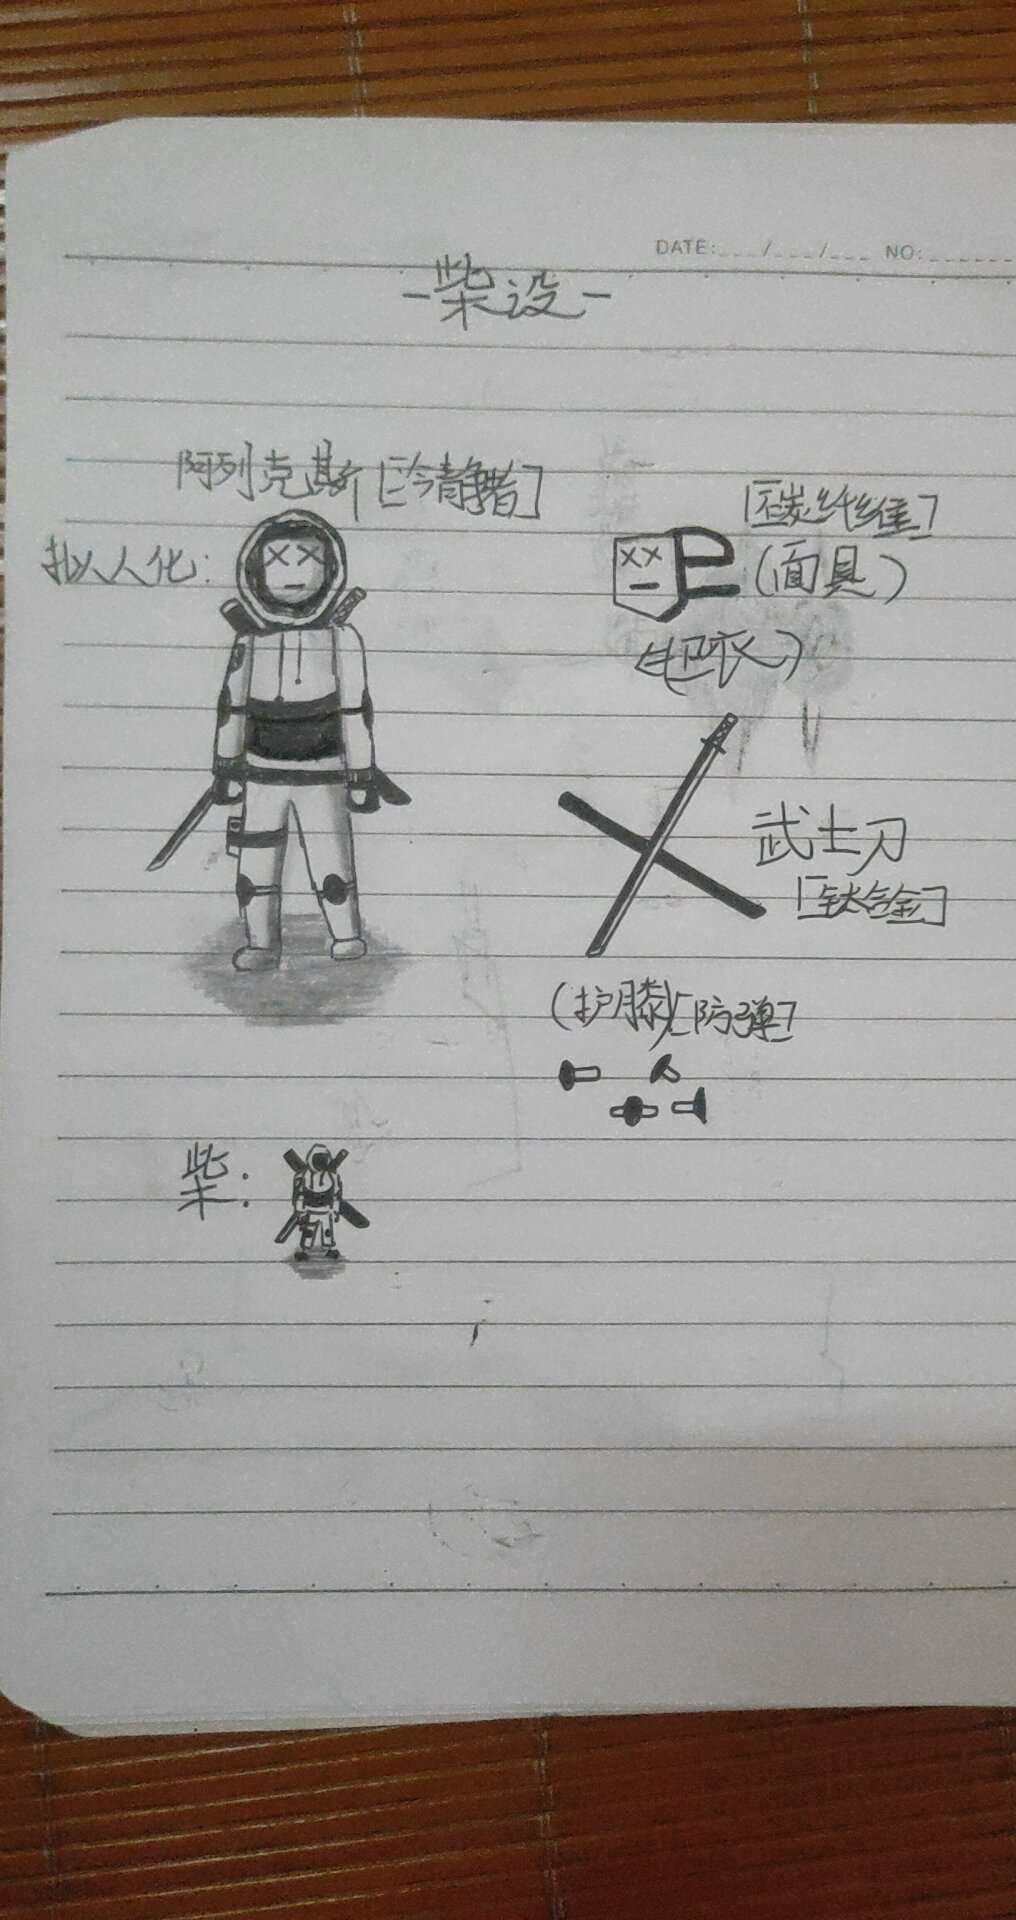 DATE:___/___/___ NO:______
-柴设-
阿列克斯[冷静者]
拟人化:
[碳纤维]
(面具)
(卫衣)
武士刀
[钛合金]
(护膝)[防弹]
柴: